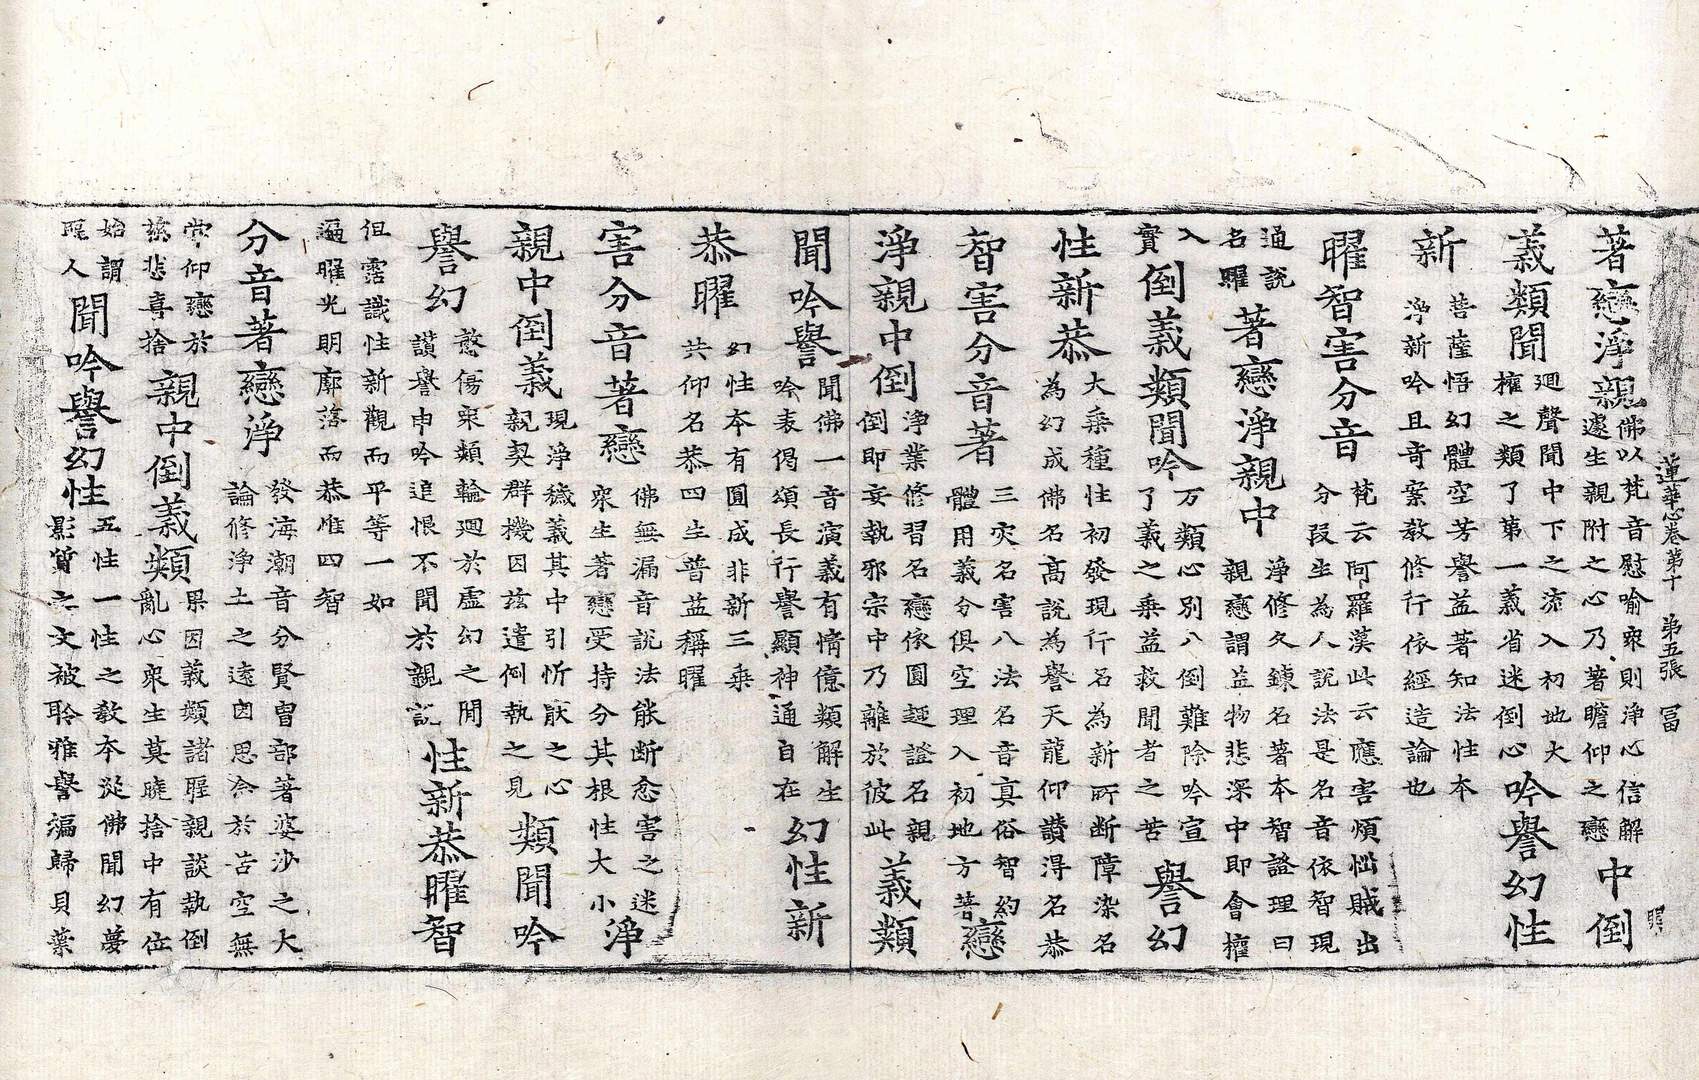 蓮華心卷第十 第五張 冨
著戀淨親 佛以梵音慰喻衆則淨心信解 遽生親附之心乃著瞻仰之戀 中倒
義類聞 迴聲聞中下之流入初地大 權之類了第一義省迷倒心 吟譽幻性
新 菩薩悟幻體空芳譽益著知法性本 淨新吟且奇案教修行依經造論也
曜智害分音 梵云阿羅漢此云應害煩惱賊出 分段生為人說法是名音依智現
通說名曜 著戀淨親中 淨修久鍊名著本智證理曰 親戀謂益物悲深中即會權
入實 倒義類聞吟 万類心別八倒難除吟宣 了義之乗益救聞者之苦 譽幻
性新恭 大乗種性初發現行名為新所断障染名 為幻成佛名髙說為譽天龍仰讚得名恭
智害分音著 三灾名害八法名音真俗智約 體用義分俱空理入初地方著 戀
淨親中倒 淨業修習名戀依圓趣證名親 倒即妄執邪宗中乃離於彼此 義類
聞吟譽 聞佛一音演義有情億類解生 吟表偈頌長行譽顯神通自在 幻性新
恭曜 幻性本有圓成非新三乗 共仰名恭四生普益稱曜
害分音著戀 佛無漏音說法能断忿害之迷 衆生著戀受持分其根性大小 淨
親中倒義 現淨穢義其中引忻猒之心 親契群機因玆遣倒執之見 類聞吟
譽幻 愍傷衆類輪迴於虛幻之間 讃譽申吟追恨不聞於親說 性新恭曜智
但露識性新觀而平等一如 遍曜光明廓落而恭惟四智
分音著戀淨 發海潮音分賢曽部著婆沙之大 論修淨土之遠因思念於苦空無
常仰戀於慈悲喜捨 親中倒義類 果因義類諸聖親談執倒 亂心衆生莫曉捨中有位
始謂聖人 聞吟譽幻性 五性一性之教本従佛聞幻夢 影質之文被聆雅譽漏歸貝葉